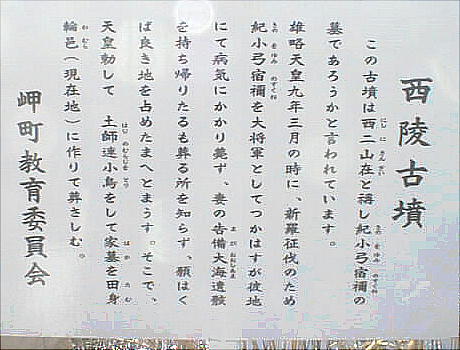 西陵古墳
この古墳は西二山在と称し紀小弓宿禰の
墓であろうかと言われています。
雄略天皇九年三月の時に、新羅征伐のため
紀小弓宿禰を大将軍としてつかはすが彼地
にて病気にかかり薨ず、妻の吉備大海遺骸
を持ち帰りたるも葬る所を知らず、願はく
ば良き地を占めたまへとまうす。そこで、
天皇勅して 土師連小鳥をして家墓を田身
輪邑(現在地)に作りて葬さしむ。
岬町教育委員会